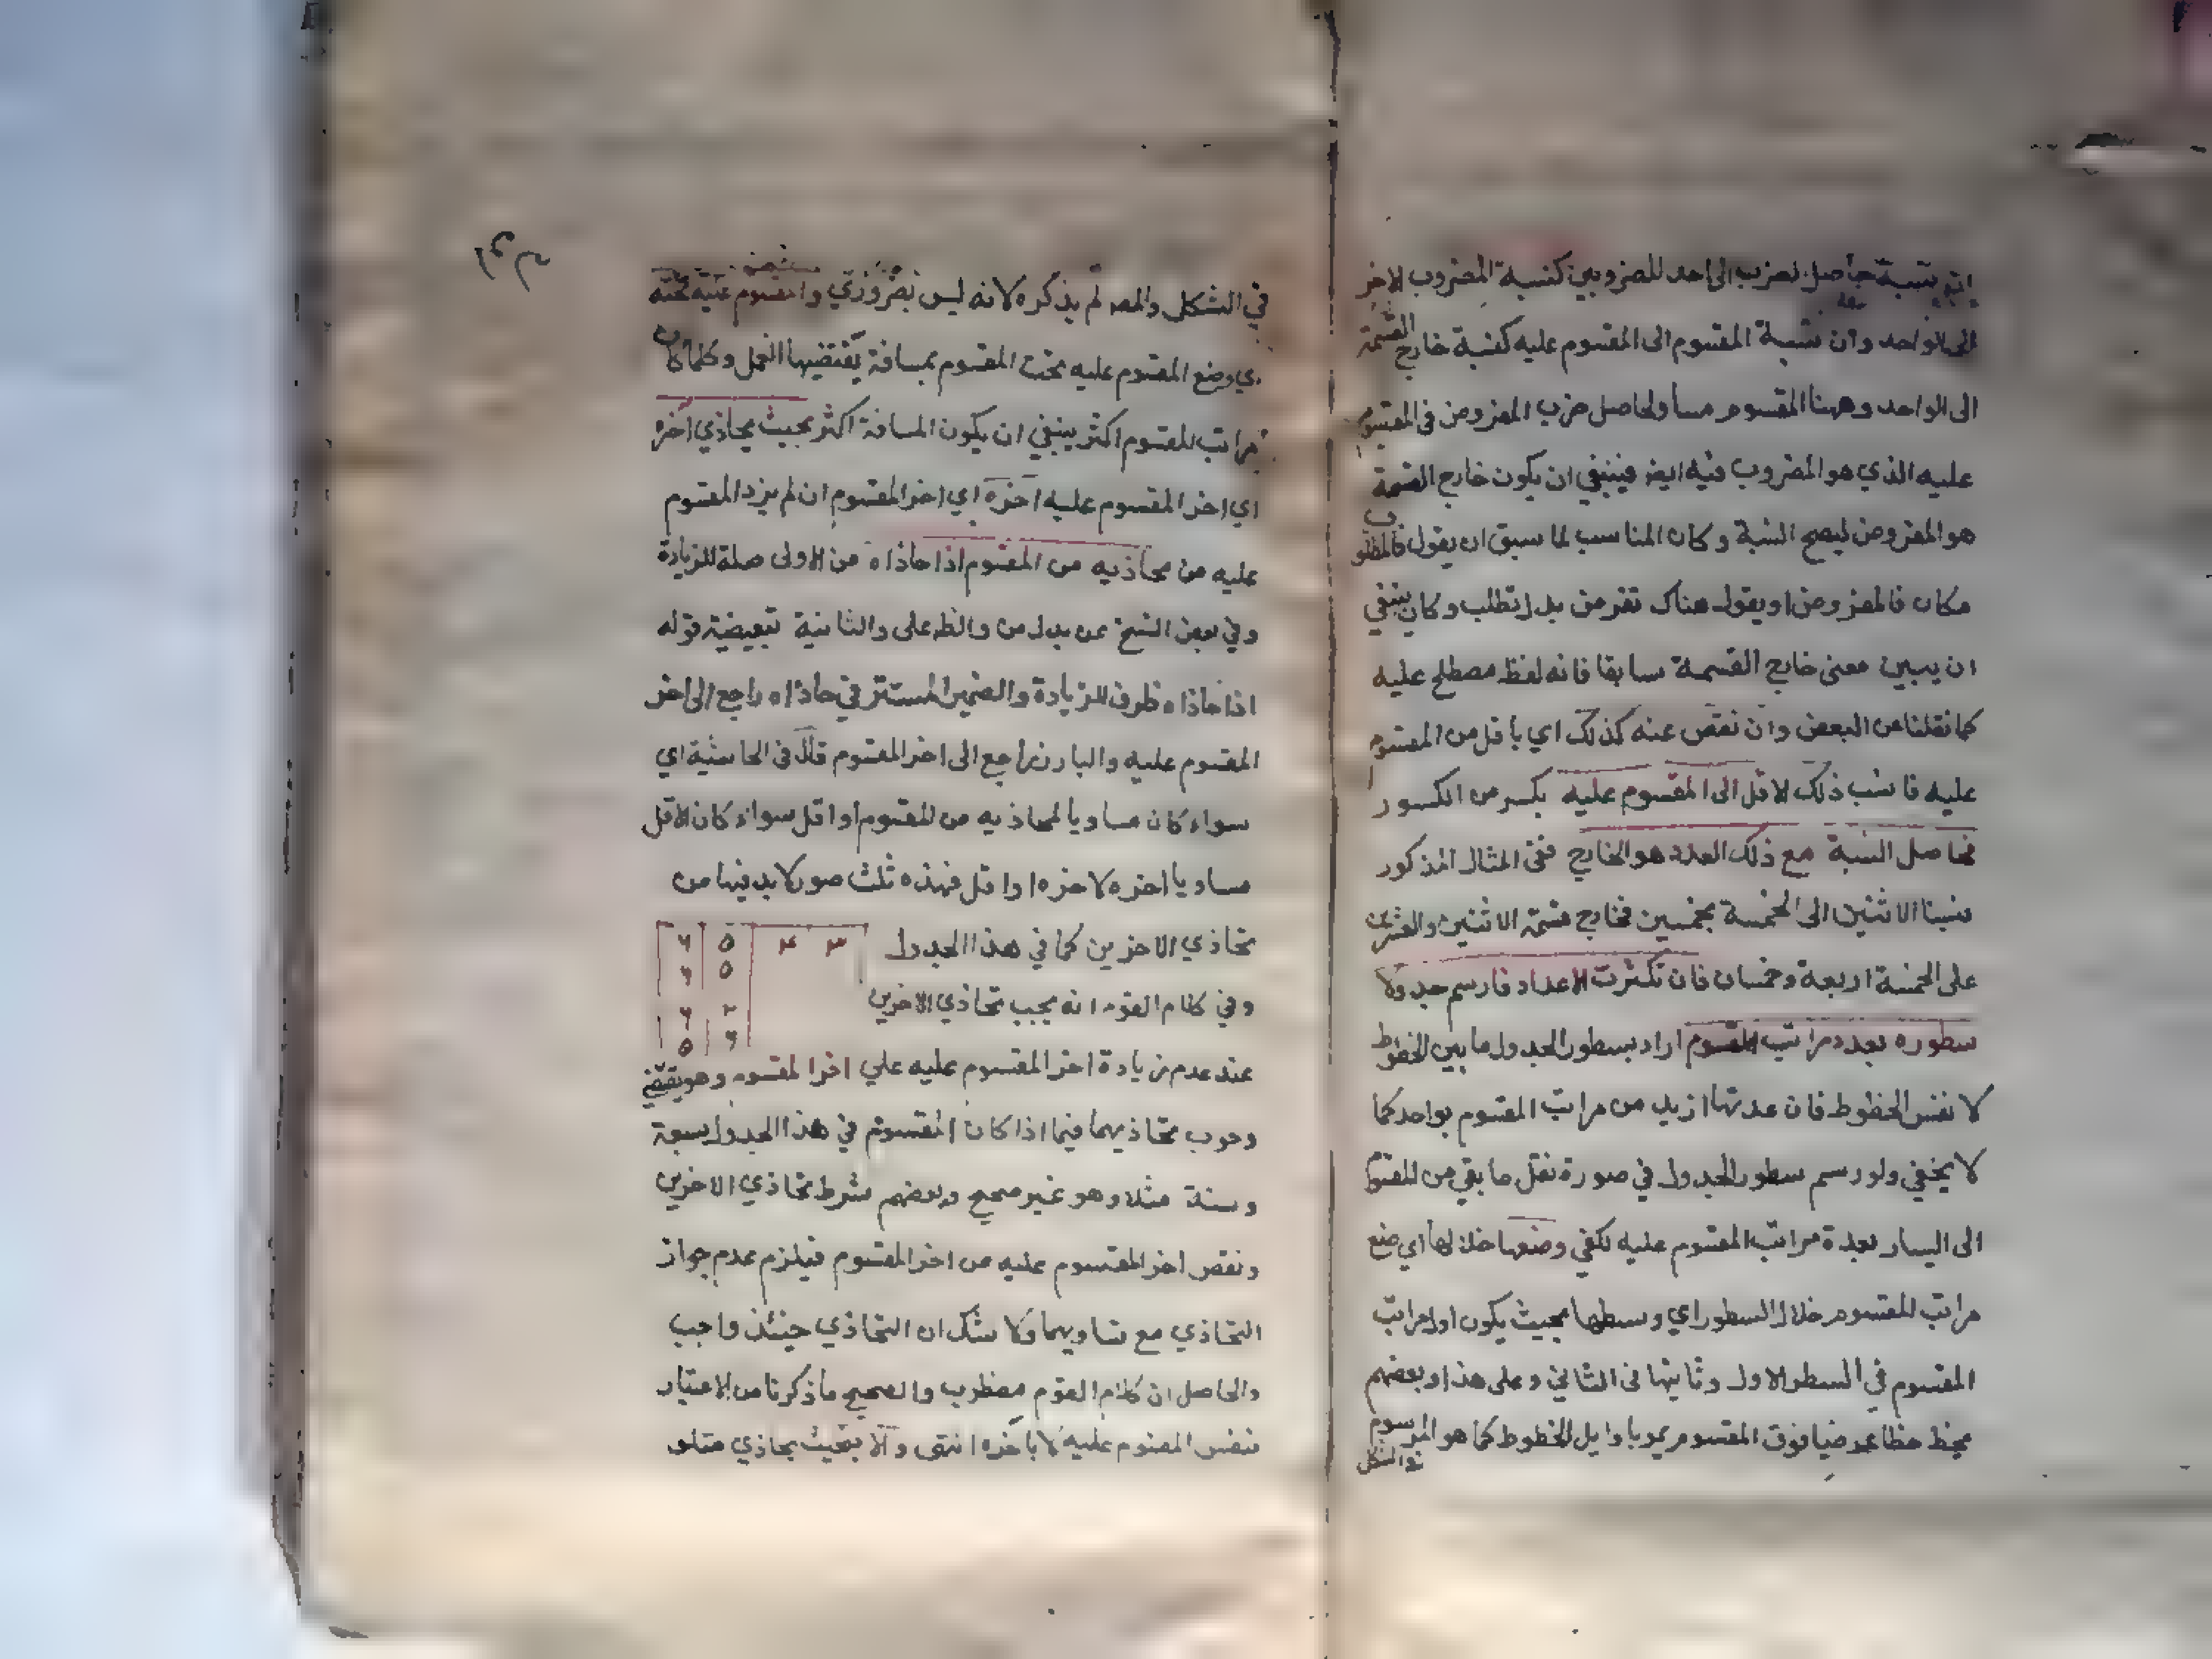 انه نسبة حاصل لضرب الى احد المضروبين كنسبة المضروب الاخر
الى الواحد وان نسبة المقسوم الى المقسوم عليه كنسبة خارج القسمة
الى الواحد وههنا المقسوم مساو لحاصل ضرب المفروض فى المقسوم
عليه الذي هو المضروب فيه ايضا فينبغي ان يكون خارج القسمة
هو المفروض ليصح النسبة وكان المناسب لما سبق ان يقول فالمطلوب
مكان فالمفروض او يقول هناك تفرض بدل تطلب وكان ينبغي
ان يبين معنى خارج القسمة سابقا فانه لفظ مصطلح عليه
كما نقلنا من البعض وان نقص عنه كذلك اي باقل من المقسوم
عليه فانسب ذلك الاقل الى المقسوم عليه بكسر من الكسور
فحاصل النسبة مع ذلك العدد هو الخارج ففى المثال المذكور
نسبنا الاثنين الى الخمسة بخمسين فخارج قسمة الاثنين والعشرين
على الخمسة اربعة وخمسان فان تكثرت الاعداد فارسم جدولا
سطوره بعدد مراتب المقسوم اراد بسطور الجدول ما بين الخطوط
لا نفس الخطوط فان عدتها ازيد من مراتب المقسوم بواحد كما
لا يخفي ولو رسم سطور الجدول في صورة نقل ما بقي من المقسوم
الى اليسار بعدة مراتب المقسوم عليه لكفي وضعها خلالها اي ضع
مراتب المقسوم خلال السطور اي وسطها بحيث يكون اول مراتب
المقسوم في السطر الاول وثانيها فى الثاني وعلى هذا وبعضهم
يخط خطا عرضيا فوق المقسوم يمر باوايل الخطوط كما هو المرسوم
فى الشكل
في الشكل والمصـ لم يذكره لانه ليس بضروري والمقسوم عليه تحته
اي وضع المقسوم عليه تحت المقسوم بمسافة يقتضيها العمل وكلما كان
مراتب المقسوم اكثر ينبغي ان يكون المسافة اكثر بحيث يحاذي اخره
اي اخر المقسوم عليه اخره اي اخر المقسوم ان لم يزد المقسوم
عليه من محاذيه من المقسوم اذا حاذاه من الاولى صلة للزيادة
وفي بعض النسخ عن بدل من والظ على والثانية تبعيضية قوله
اذا حاذاه ظرف للزيادة والضمير المستتر في حاذاه راجع الى اخر
المقسوم عليه والبارز راجع الى اخر المقسوم قال فى الحاشية اي
سواء كان مساويا لمحاذيه من المقسوم او اقل سواء كان الاقل
مساويا اخره لاخره او اقل فهذه ثلث صور لا بد فيها من
تحاذي الاخرين كما في هذا الجدول
٣ ۴ ٥ ۶
٥ ۶
٢ ۶
۶ ٥
وفي كلام القوم انه يجب تحاذي الاخرين
عند عدم زيادة اخر المقسوم عليه علي اخر المقسوم وهو يقتضي
وجوب تحاذيهما فيما اذا كان المقسوم في هذا الجدول سبعة
وستة مثلا وهو غير صحيح وبعضهم شرط تحاذي الاخرين
ونقص اخر المقسوم عليه من اخر المقسوم فيلزم عدم جواز
التحاذي مع تساويهما ولا شك ان التحاذي حينئذ واجب
والحاصل ان كلام القوم مضطرب والصحيح ما ذكرنا من الاعتبار
بنفس المقسوم عليه لا باخره انتهى والا بحيث يحاذي متلو